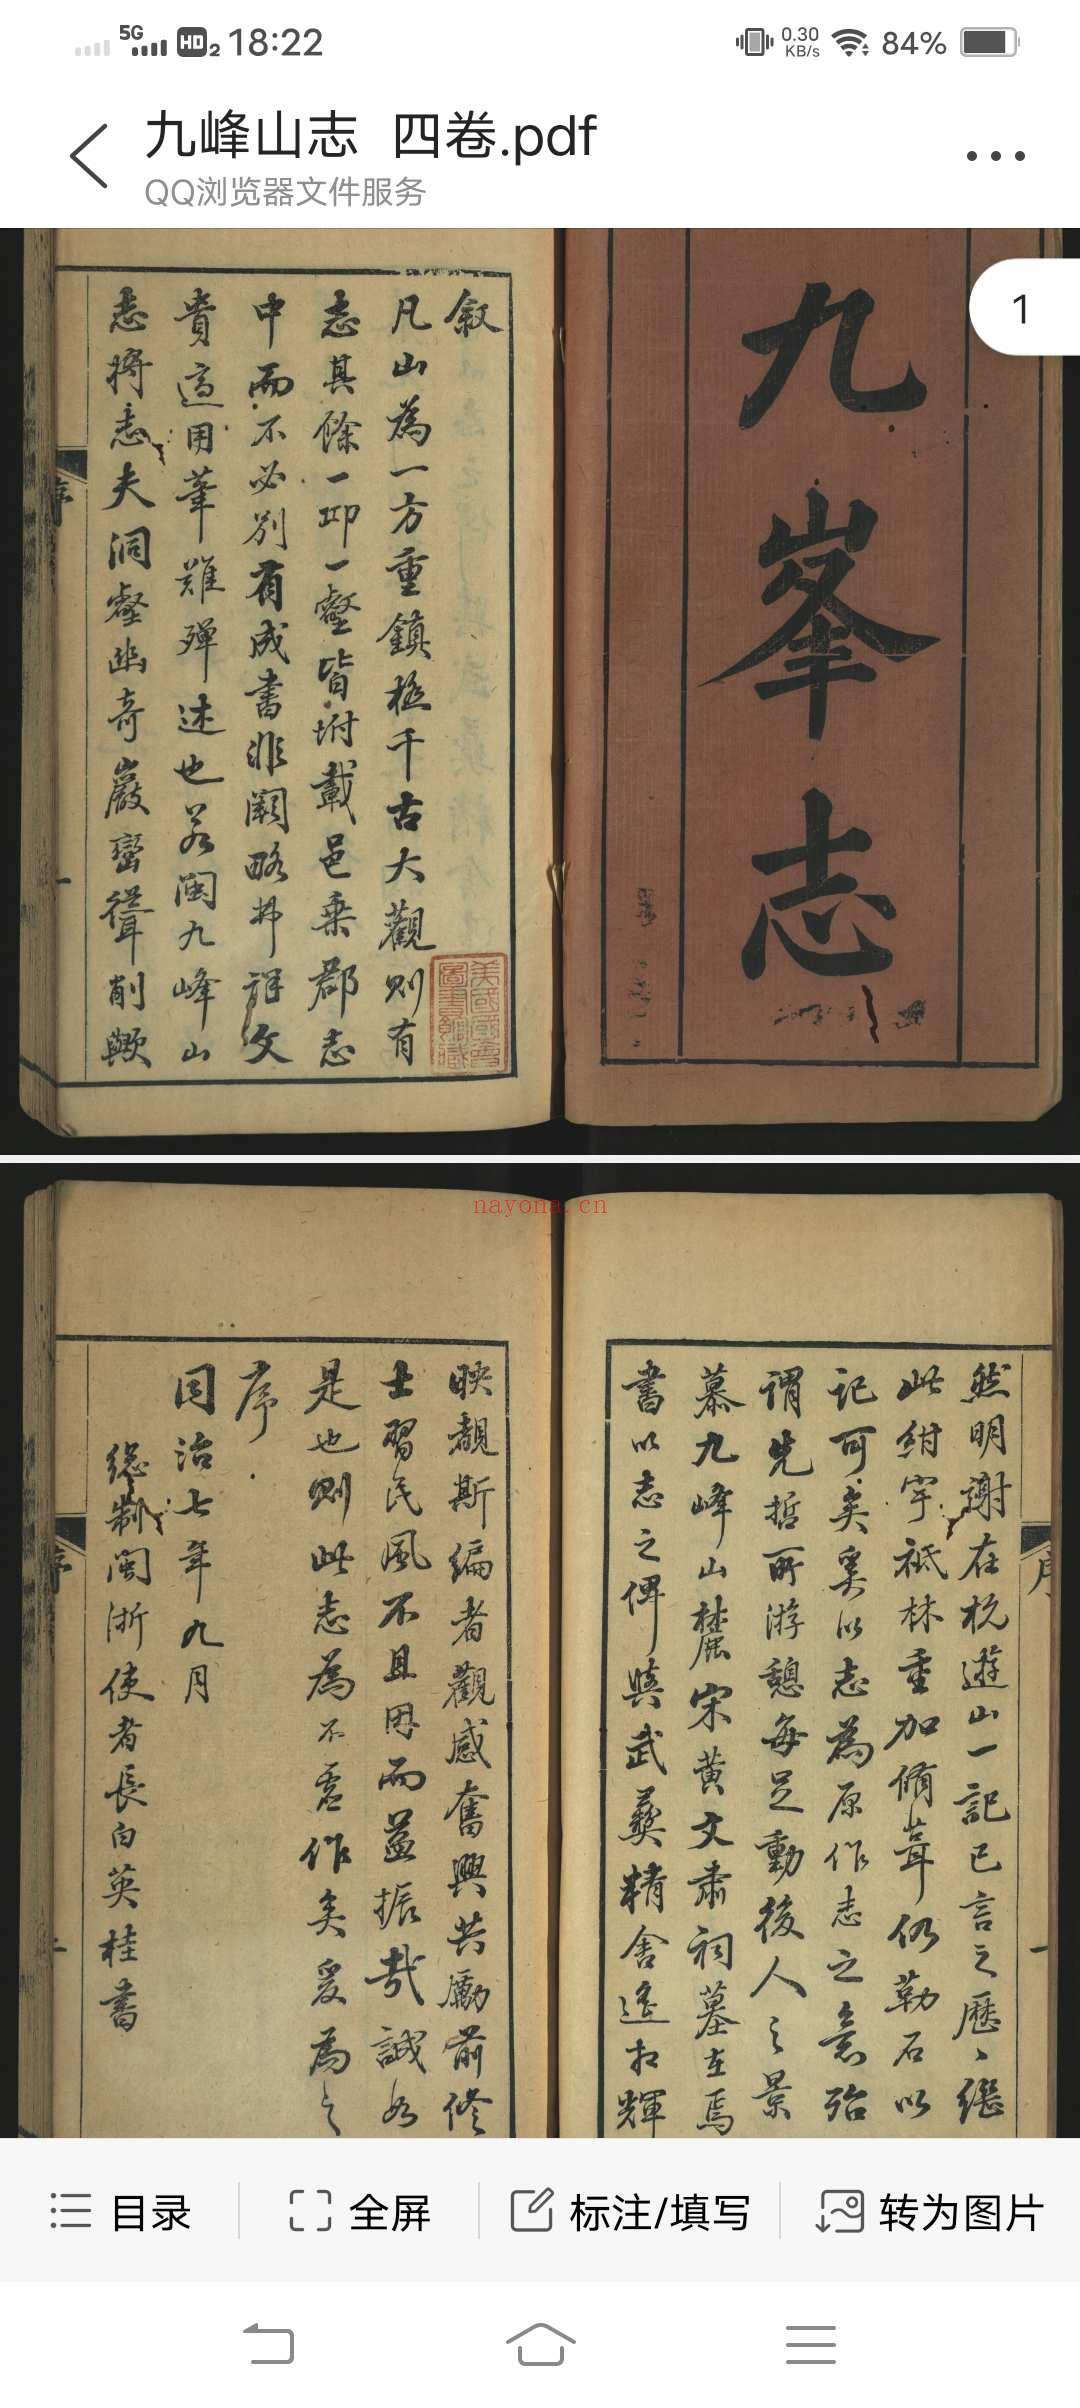 5G HD 2 18:22
0.30 KB/s 84%
九峰山志 四卷.pdf
QQ浏览器文件服务
1
九峯志
敘
凡山為一方重鎮極千古大觀則有
志其餘一邱一壑皆坿載邑乗郡志
中而不必別有成書非闕略弗詳文
貴適用筆難殫述也若閩九峰山
志將志夫洞壑幽奇巖巒聳削歟
美國國會圖書館藏
序
nayona.cn
然明謝在杭遊山一記已言之歷、繼
此紺宇祗林重加脩葺仍勒石以
記可矣奚以志為原作志之意殆
謂先哲所游憩每足動後人之景
慕九峰山麓宋黃文肅祠墓在焉
書以志之俾與武彝精舍遙相輝
映覩斯編者觀感奮興共勵前修
士習民風不且因而益振哉誠如
是也則此志為不虛作矣爰為之
序
同治七年九月
總制閩浙使者長白英桂書
序
目录
全屏
标注/填写
转为图片